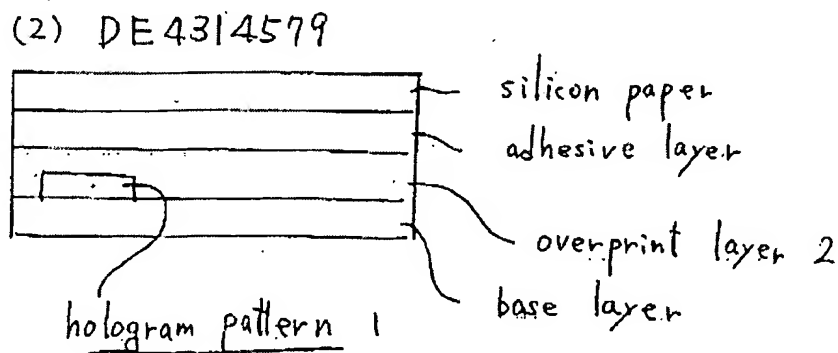 (2) DE4314579
silicon paper
adhesive layer
overprint layer 2
base layer
hologram pattern 1